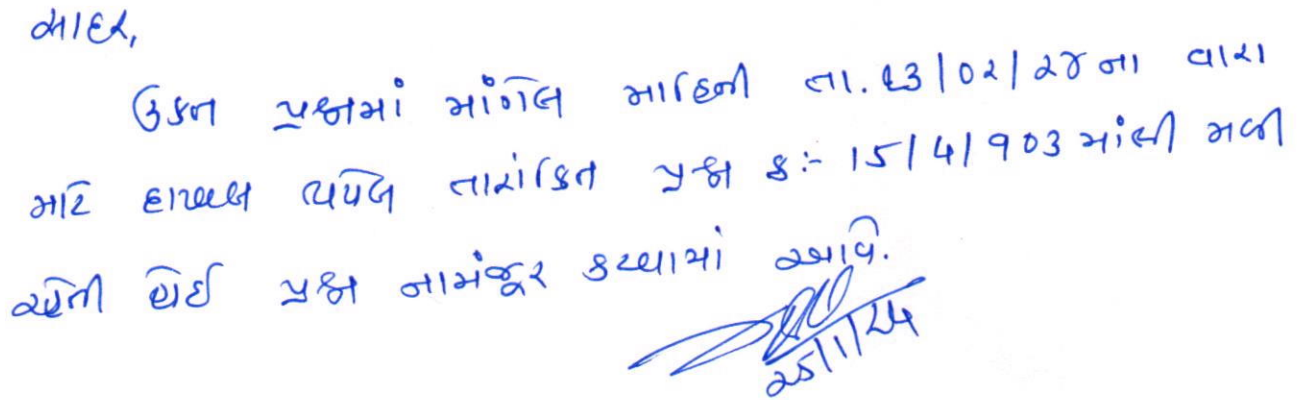 સાદર,
ઉકત પ્રશ્નમાં માંગેલ માહિતી તા. ૨૩/૦૨/૨૪ ના વારા
માટે દાખલ થયેલ તારાંકિત પ્રશ્ન ક્રઃ- ૧૫/૪/૯૦૩ માંથી મળી
રહેતી હોઈ પ્રશ્ન નામંજૂર કરવામાં આવે.
૨૫/૧/૨૪